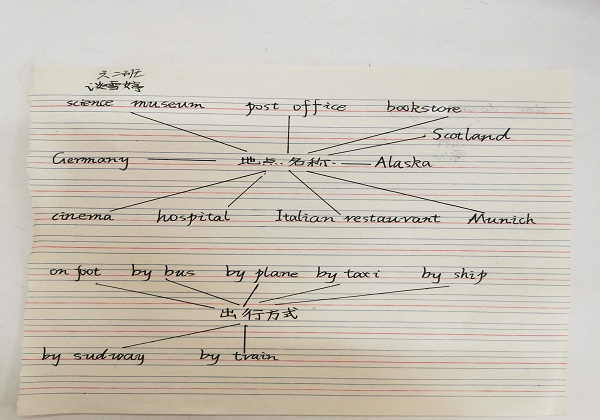 六二班
science museum post office bookstore
Scotland
Germany 地点名称 Alaska
cinema hospital Italian restaurant Munich
on foot by bus by plane by taxi by ship
出行方式
by sudway by train